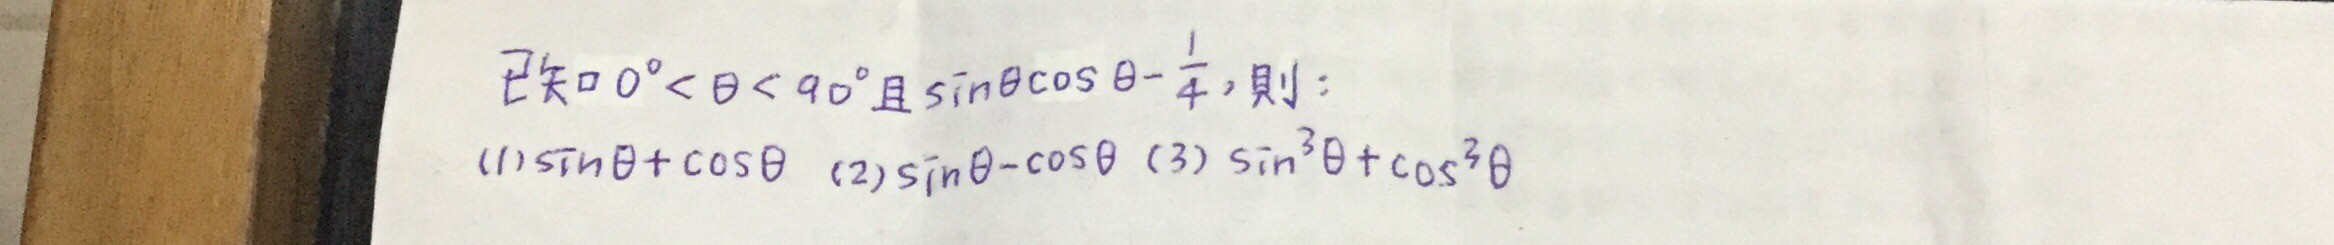 已知0°<θ<90°且sinθcosθ-1/4,則:
(1)sinθ+cosθ (2)sinθ-cosθ (3) sin³θ+cos³θ